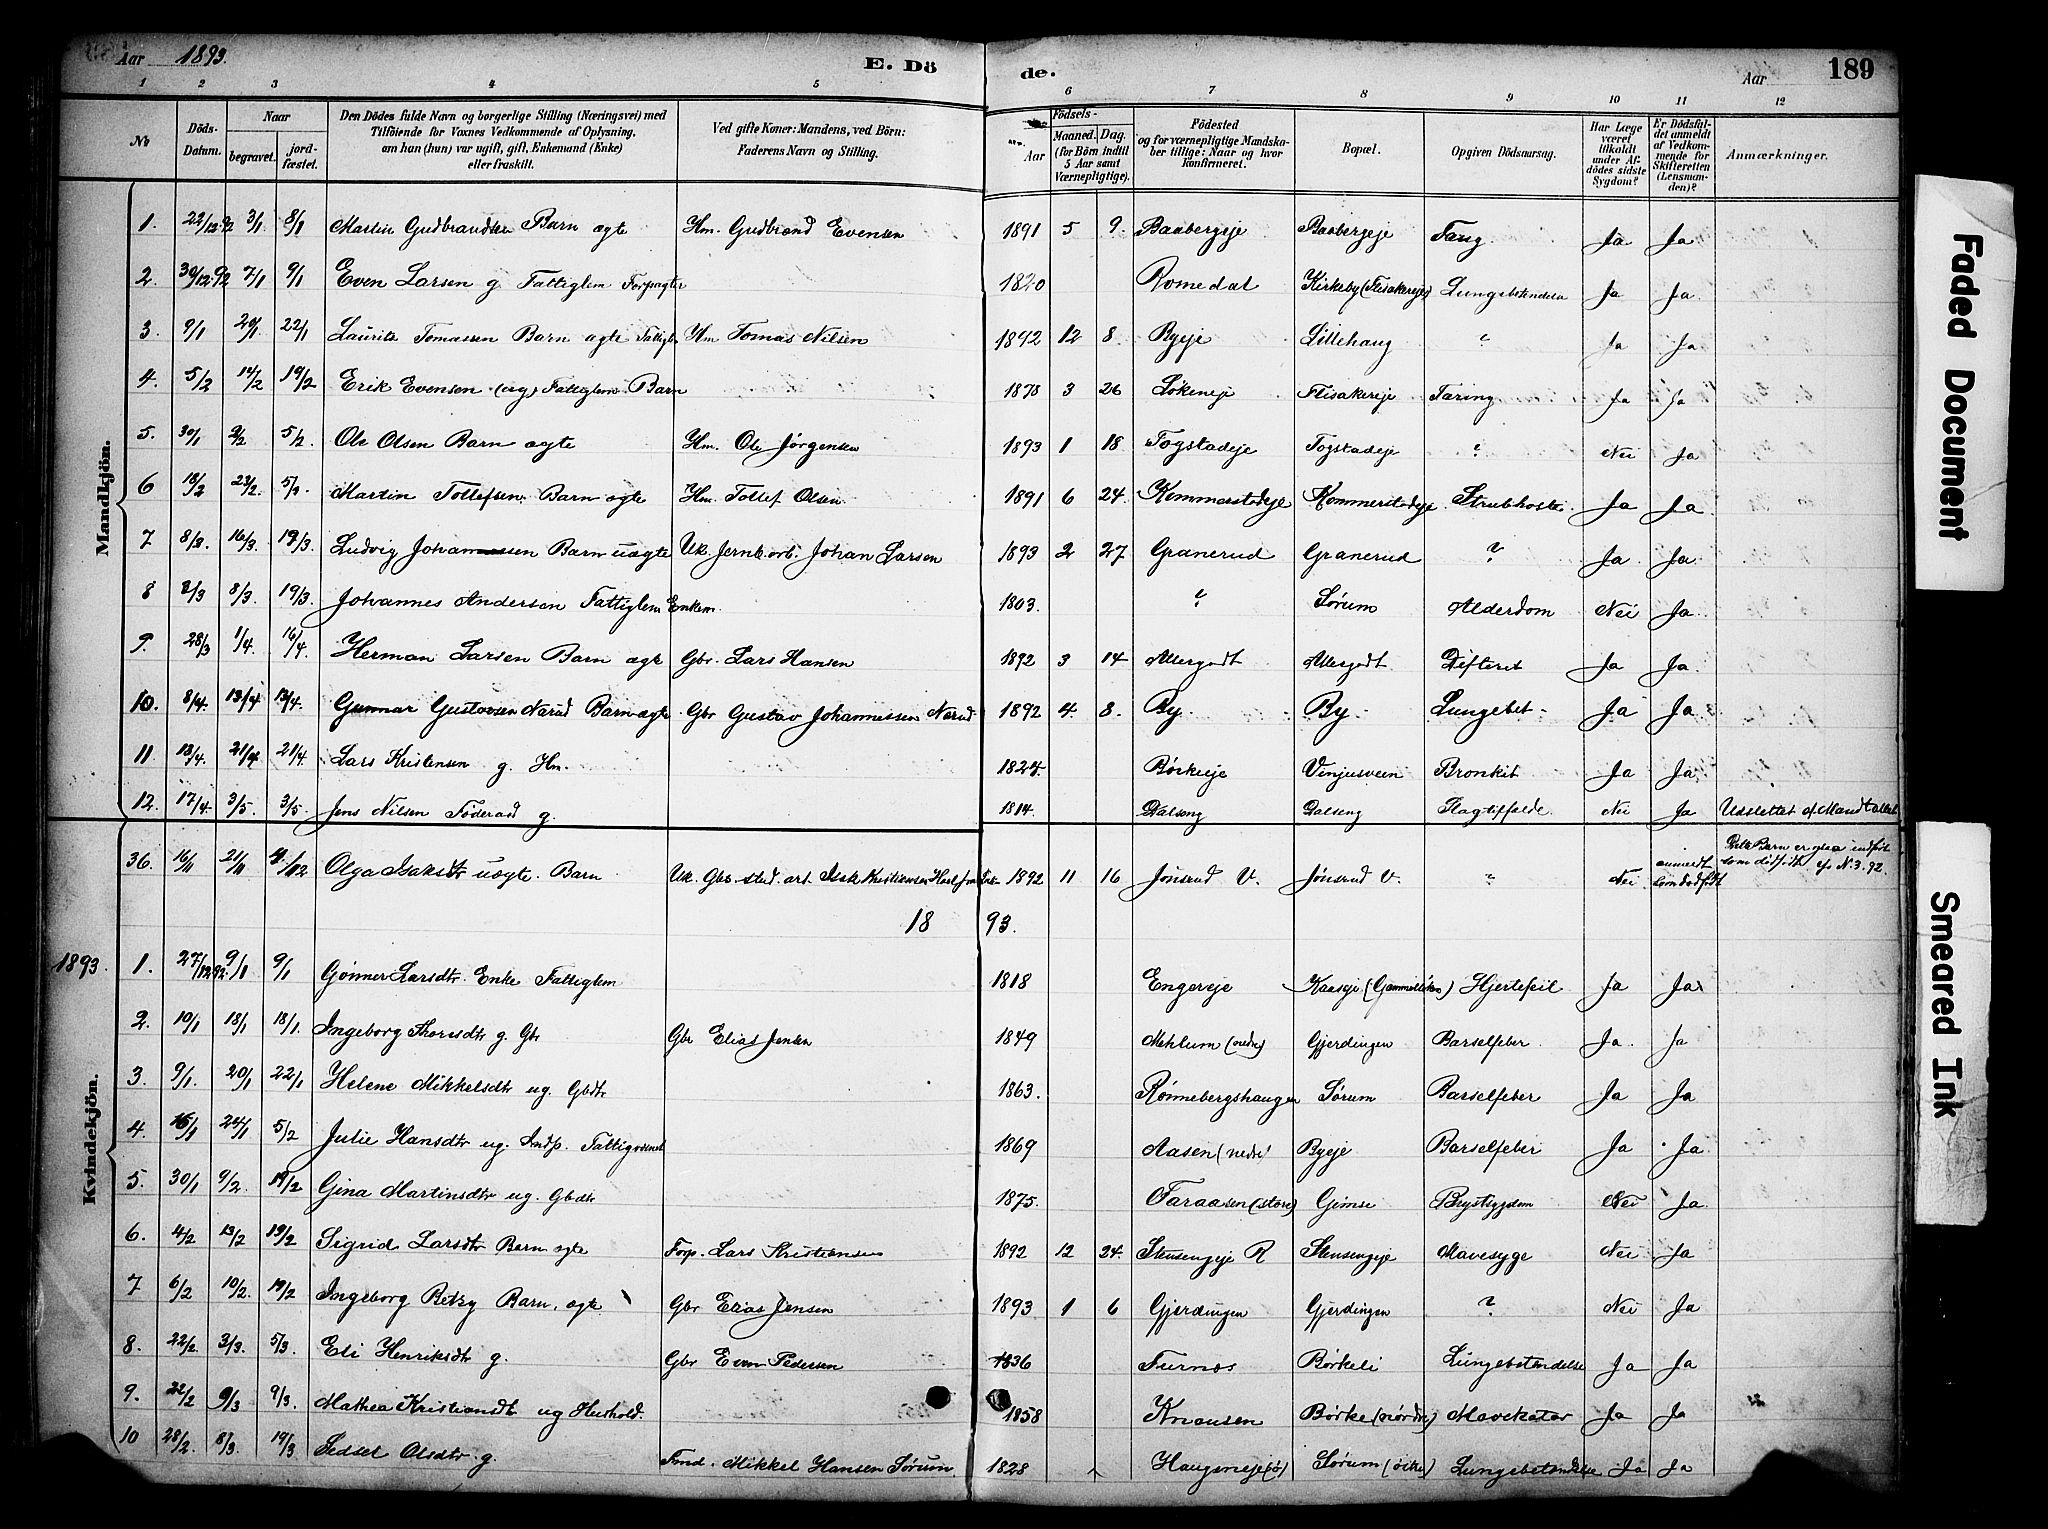 Aar 1893. E. Dö de. Aar 189
1 2 3 4 5 6 7 8 9 10 11 12
No Döds-Datum. Naar begravet. jordfæstet. Den Dödes fulde Navn og borgerlige Stilling (Næringsvei) med Tilföiende for Voxnes Vedkommende af Oplysning, om han (hun) var ugift, gift, Enkemand (Enke) eller fraskilt. Ved gifte Koner: Mandens, ved Börn: Faderens Navn og Stilling. Aar Födsels- Maaned. Dag. (for Börn indtil 5 Aar samt Værnepligtige). Födested og for værnepligtige Mandskaber tillige: Naar og hvor konfirmeret. Bopæl. Opgiven Dödsaarsag. Har Læge været tilkaldt under Afdödes sidste Sygdom? Er Dödsfaldet anmeldt af Vedkommende for Skifteretten (Lensmanden)? Anmærkninger.
Mandkjön.
1. 22/12.92 3/1 8/1 Martin Gudbrandsen Barn ægte Hm. Gudbrand Evensen 1891 5 9. Baabergeje Baabergeje Tæring. Ja Ja
2. 30/12.92 7/1 9/1 Even Larsen g. Fattiglem Forpagter 1820 Romedal Kirkeby (Flisakereje) Lungebetændelse Ja Ja
3. 9/1 20/1 22/1 Laurits Tomassen Barn ægte Fattiglem Hm Tomas Nilsen 1892 12 8 Byeje Lillehaug ? Ja Ja
4. 5/2 14/2 19/2 Erik Evensen (ug) Fattiglem Barn 1878 3 26 Løkeneje Flisakereje Tæring Ja Ja
5. 30/1 2/2 5/2. Ole Olsen Barn ægte Hm. Ole Jørgensen 1893 1 18 Togstadeje Togstadeje ? Nei Ja
6 18/2 23/2. 5/3. Martin Tollefsen Barn ægte Hm. Tollef Olsen 1891 6 24. Kommerstadeje Kommerstadeje. Strubhoste. Ja Ja
7 8/3. 16/3. 19/3 Ludvig Johannessen Barn uægte Uk. Jernb. arb. Johan Larsen 1893 2 27 Granerud Granerud ? Ja Ja.
8 2/3 8/3. 19/3. Johannes Andersen Fattiglem Enkem. 1803. ? Sørum Alderdom Nei Ja
9. 28/3 1/4. 16/4. Herman Larsen Barn ægte Gbr. Lars Hansen 1892 3 14 Allergodt Allergodt Difterit Ja Ja.
10. 8/4. 13/4 13/4. Gunnar Gustavsen Narud Barn ægte Gbr Gustav Johannessen Narud 1892 4. 8. By By Lungebet. Ja Ja
11 13/4. 21/4 21/4 Lars Kristensen g. Hm. 1824. Børkeeje Vinjusveen Bronkit Ja Ja
12. 17/4. 3/5. 3/5 Jens Nilsen Føderaad g. 1814. Dalseng Dalseng Slagtilfælde Nei Ja Udslettet af Mandtallet
36. 16/11 21/11 4/12 Olga Isaksdtr uægte Barn Uk. Gbr. sted. arb. Isak Kristiansen 1892 11 16 Jønsrud V. Jønsrud V. ? Nei anmeldt som dødfødt Dette Barn er ogsaa indført som dødfødt cfr N. 3. 92.
18 93.
1893. Kvindekjön.
1. 27/12.92 9/1 9/1 Gønner Larsdtr. Enke Fattiglem 1818 Engereje Kaaseje (Gammelløken) Hjertefeil Ja Ja
2. 10/1 18/1 18/1. Ingeborg Thorsdtr g. Gbr Gbr Elias Jensen 1849 Mehlum (nedre) Gjerdingen Barselfeber Ja. Ja
3. 9/1. 20/1 22/1 Helene Mikkelsdtr ug. Gbdtr 1863. Rønnebergshaugen Sørum Barselfeber Ja Ja
4. 15/1 24/1 5/2 Julie Hansdtr ug. Indp. Fattigvæsenet 1869 Aasen (nedre) Byeje Barselfeber Ja Ja.
5. 30/1 9/2. 19/2 Gina Martinsdtr ug. Gbdtr 1875. Faraasen (store) Gimse Brystsygdom Nei Ja.
6. 4/2 13/2 19/2 Sigrid Larsdtr Barn ægte Forp. Lars Kristiansen 1892 12 24. Stensengeje R Stensengeje Mavesyge Nei Ja
7 6/2 10/2. 19/2 Ingeborg Betzy Barn. ægte Gbr Elias Jensen 1893 1 6 Gjerdingen Gjerdingen ? Nei Ja
8. 22/2. 3/3. 5/3. Eli Henriksdtr g. Gbr Even Pedersen 1836 Furnæs Børkeli Lungebetændelse Ja Ja
9. 22/2 9/3 9/3. Mathea Kristiansdtr ug Hushold. 1858 Knausen Børke (nordre) Mavekatar Ja Ja
10 28/2. 8/3. 19/3 Sidsel Olsdtr g. Fmd. Mikkel Hansen Sørum. 1828 Haugsneje (ø) Sørum (østre) Lungebetændelse Ja Ja
Faded Document
Smeared Ink